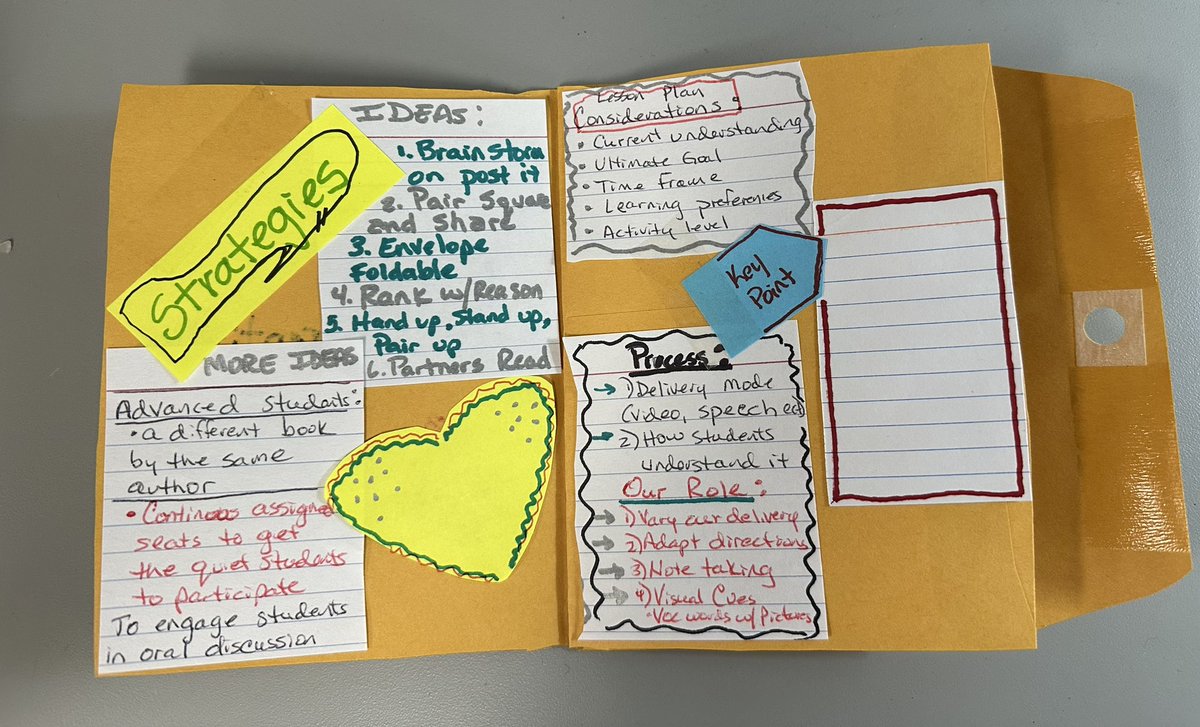 Strategies
IDEAS:
1. Brainstorm
on post it
2. Pair Square
and Share
3. Envelope
Foldable
4. Rank w/Reason
5. Hand up, Stand up,
Pair up
6. Partners Read
MORE IDEAS
Advanced students:
• a different book
by the same
author
• Continous assigned
seats to get
the quiet students
to participate
To engage students
in oral discussion
Lesson Plan
Considerations:
• Current understanding
• Ultimate Goal
• Time Frame
• Learning preferenies
• Activity level
Key
Point
Process:
→ 1) Delivery mode
(video, speech ect)
→ 2) How students
understand it
Our Role:
→ 1) Vary our delivery
→ 2) Adapt directions
→ 3) Note taking
→ 4) Visual Cues
• Voc words w/ Pictures